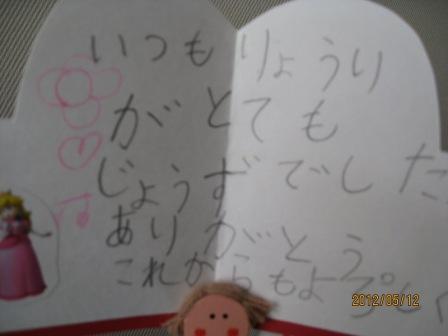 いつもりょうり
がとても
じょうずでした
ありがとう
これからもよ
2012/05/12